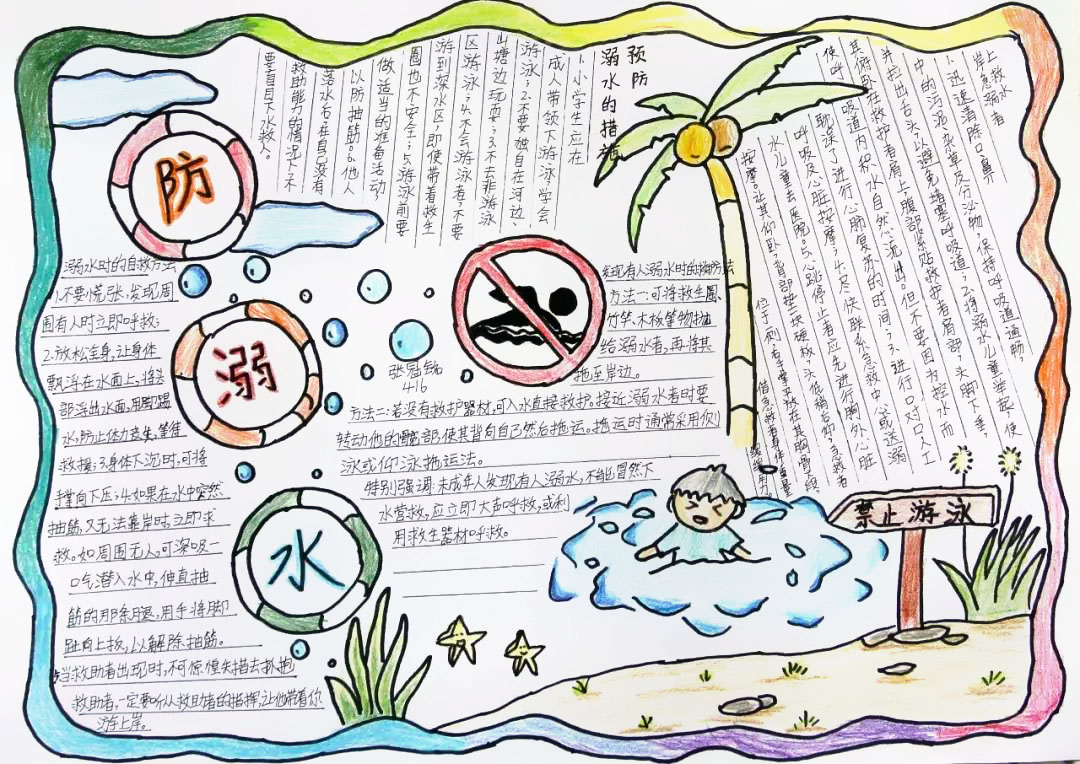 防
溺
水
预防
溺水的措施
1.小学生应在
成人带领下游泳,学会
游泳;2.不要独自在河边、
山塘边玩耍;3.不去非游泳
区游泳;4.不会游泳者,不要
游到深水区,即使带着救生
圈也不安全;5.游泳前要
做适当的准备活动,
以防抽筋。6.他人
落水后在自己没有
救助能力的情况下不
要盲目下水救人。
上救水者
岸急溺
1.迅速清除口、鼻
中的污泥、杂草及分泌物,保持呼吸道通畅,
并拉出舌头,以避免堵塞呼吸道;2.将溺水儿童举起,使
其俯卧在救护者肩上,腹部紧贴救护者肩部,头脚下垂,
使呼吸道内积水自然流出。但不要因为控水而
耽误了进行心肺复苏的时间;3.进行口对口人工
呼吸及心脏按摩;4.尽快联系急救中心或送溺
水儿童去医院。5.心跳停止者应先进行胸外心脏
按摩。让其仰卧,背部垫一块硬板,头低稍后仰,急救者
位于
溺水时的自救方法
1.不要慌张,发现周
围有人时立即呼救;
2.放松全身,让身体
飘浮在水面上,将头
部浮出水面,用脚踢
水,防止体力丧失,等待
救援;3.身体下沉时,可将
手掌向下压;4.如果在水中突然
抽筋,又无法靠岸时,立即求
救。如周围无人,可深吸一
口气潜入水中,伸直抽
筋的那条腿,用手将脚
趾向上扳,以解除抽筋。
当救助者出现时,不可惊惶失措去抓抱
救助者,一定要听从救助者的指挥,让他带着你
游上岸。
416
发现有人溺水时的救护方法
方法一:可将救生圈、
竹竿、木板等物抛
给溺水者,再将其
拖至岸边。
方法二:若没有救护器材,可入水直接救护。接近溺水者时要
转动他的髋部,使其背向自己然后拖运。拖运时通常采用侧
泳或仰泳拖运法。
特别强调:未成年人发现有人溺水,不能冒然下
水营救,应立即大声呼救,或利
用救生器材呼救。
禁止游泳